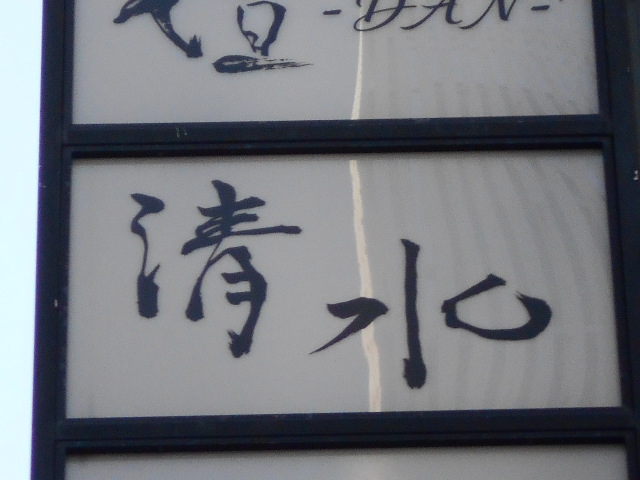 -DAN-
清水